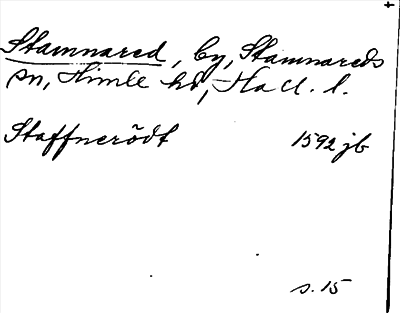 Stamnared, by, Stamnareds
sn, Himle hd, Hall. l.
Staffnerödt 1592 jb
s. 15